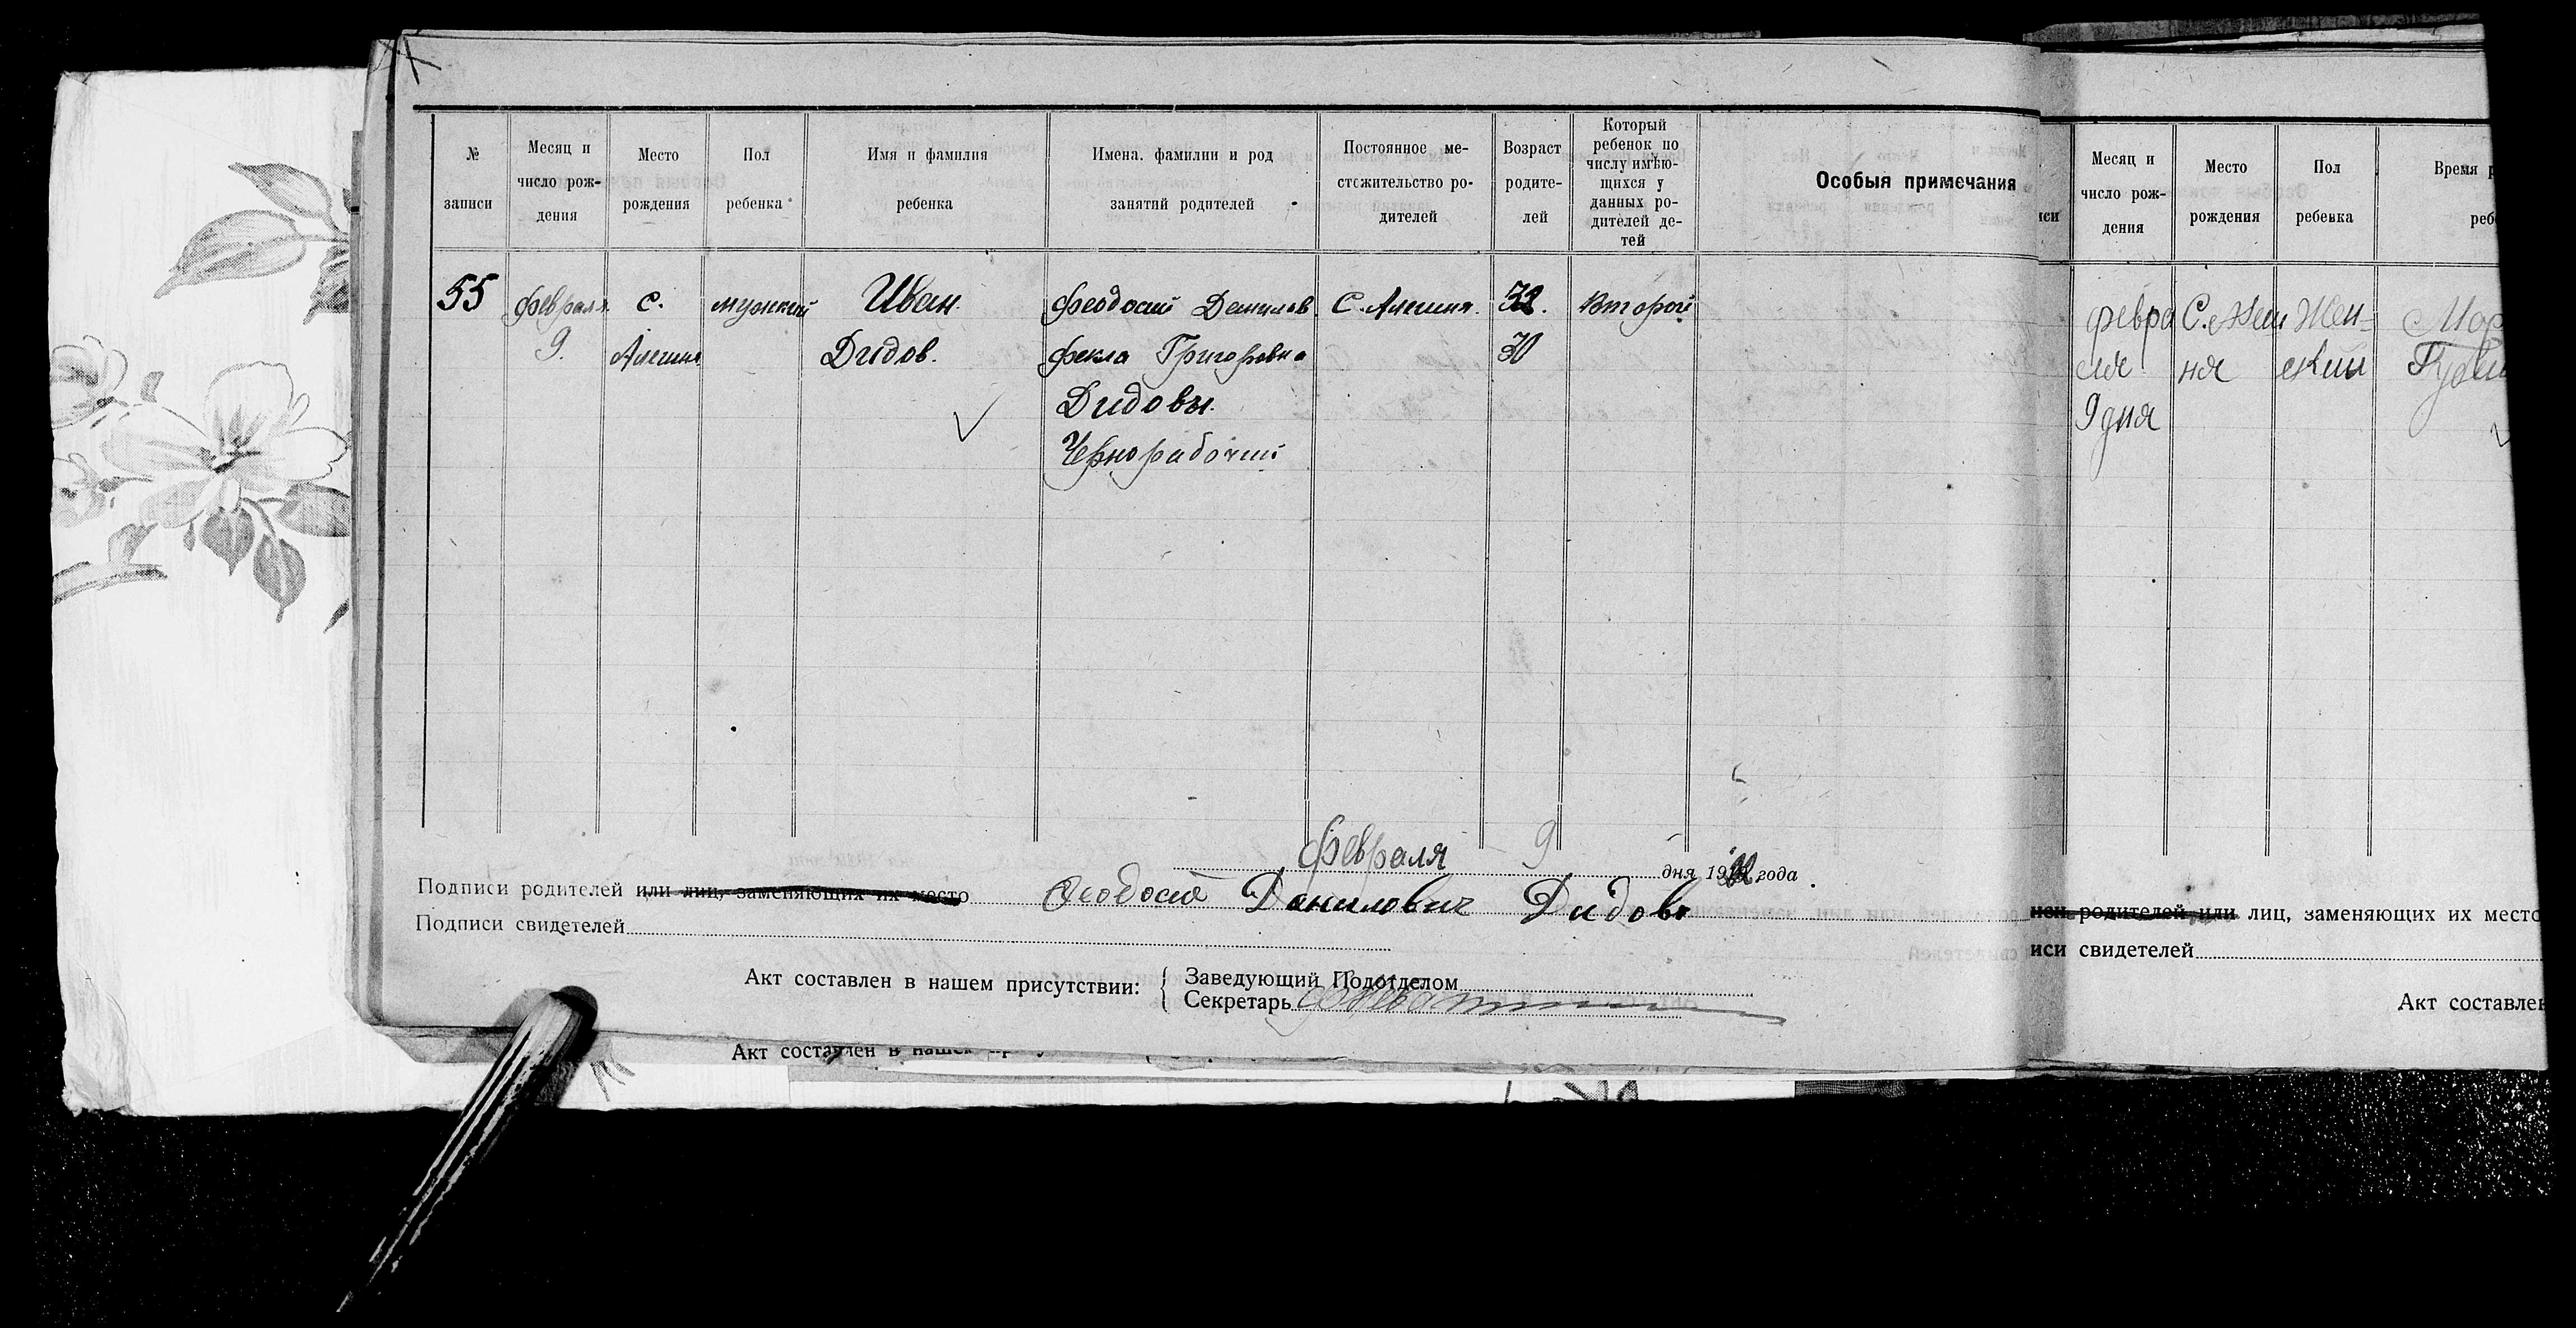 № записи
Месяц и число рож-дения
Место рождения
Пол ребенка
Имя и фамилия ребенка
Имена, фамилии и род занятий родителей
Постоянное ме-стожительство ро-дителей
Возраст родите-лей
Который ребенок по числу имѣю-щихся у данных ро-дителей де-тей
Особыя примечания
55
февраля
9.
с.
Алешня
мужский
Иван
Дидов.
Феодосий Данилов.
Фекла Григоровна
Дидовы.
Чернорабочий
С. Алешня.
32.
30
Второй
Февраля 9 дня 1922 года
Подписи родителей или лиц, заменяющих их место Феодосий Данилович Дидов
Подписи свидетелей
Акт составлен в нашем присутствии:
Заведующий Подотделом
Секретарь
Акт составлен в нашем
иси
Месяц и число рож-дения
Место рождения
Пол ребенка
Время
реб
февра
ля
9 дня
С. Алеш
ня
Жен-
ский
Мар
родителей или лиц, заменяющих их место
иси свидетелей
Акт составлен